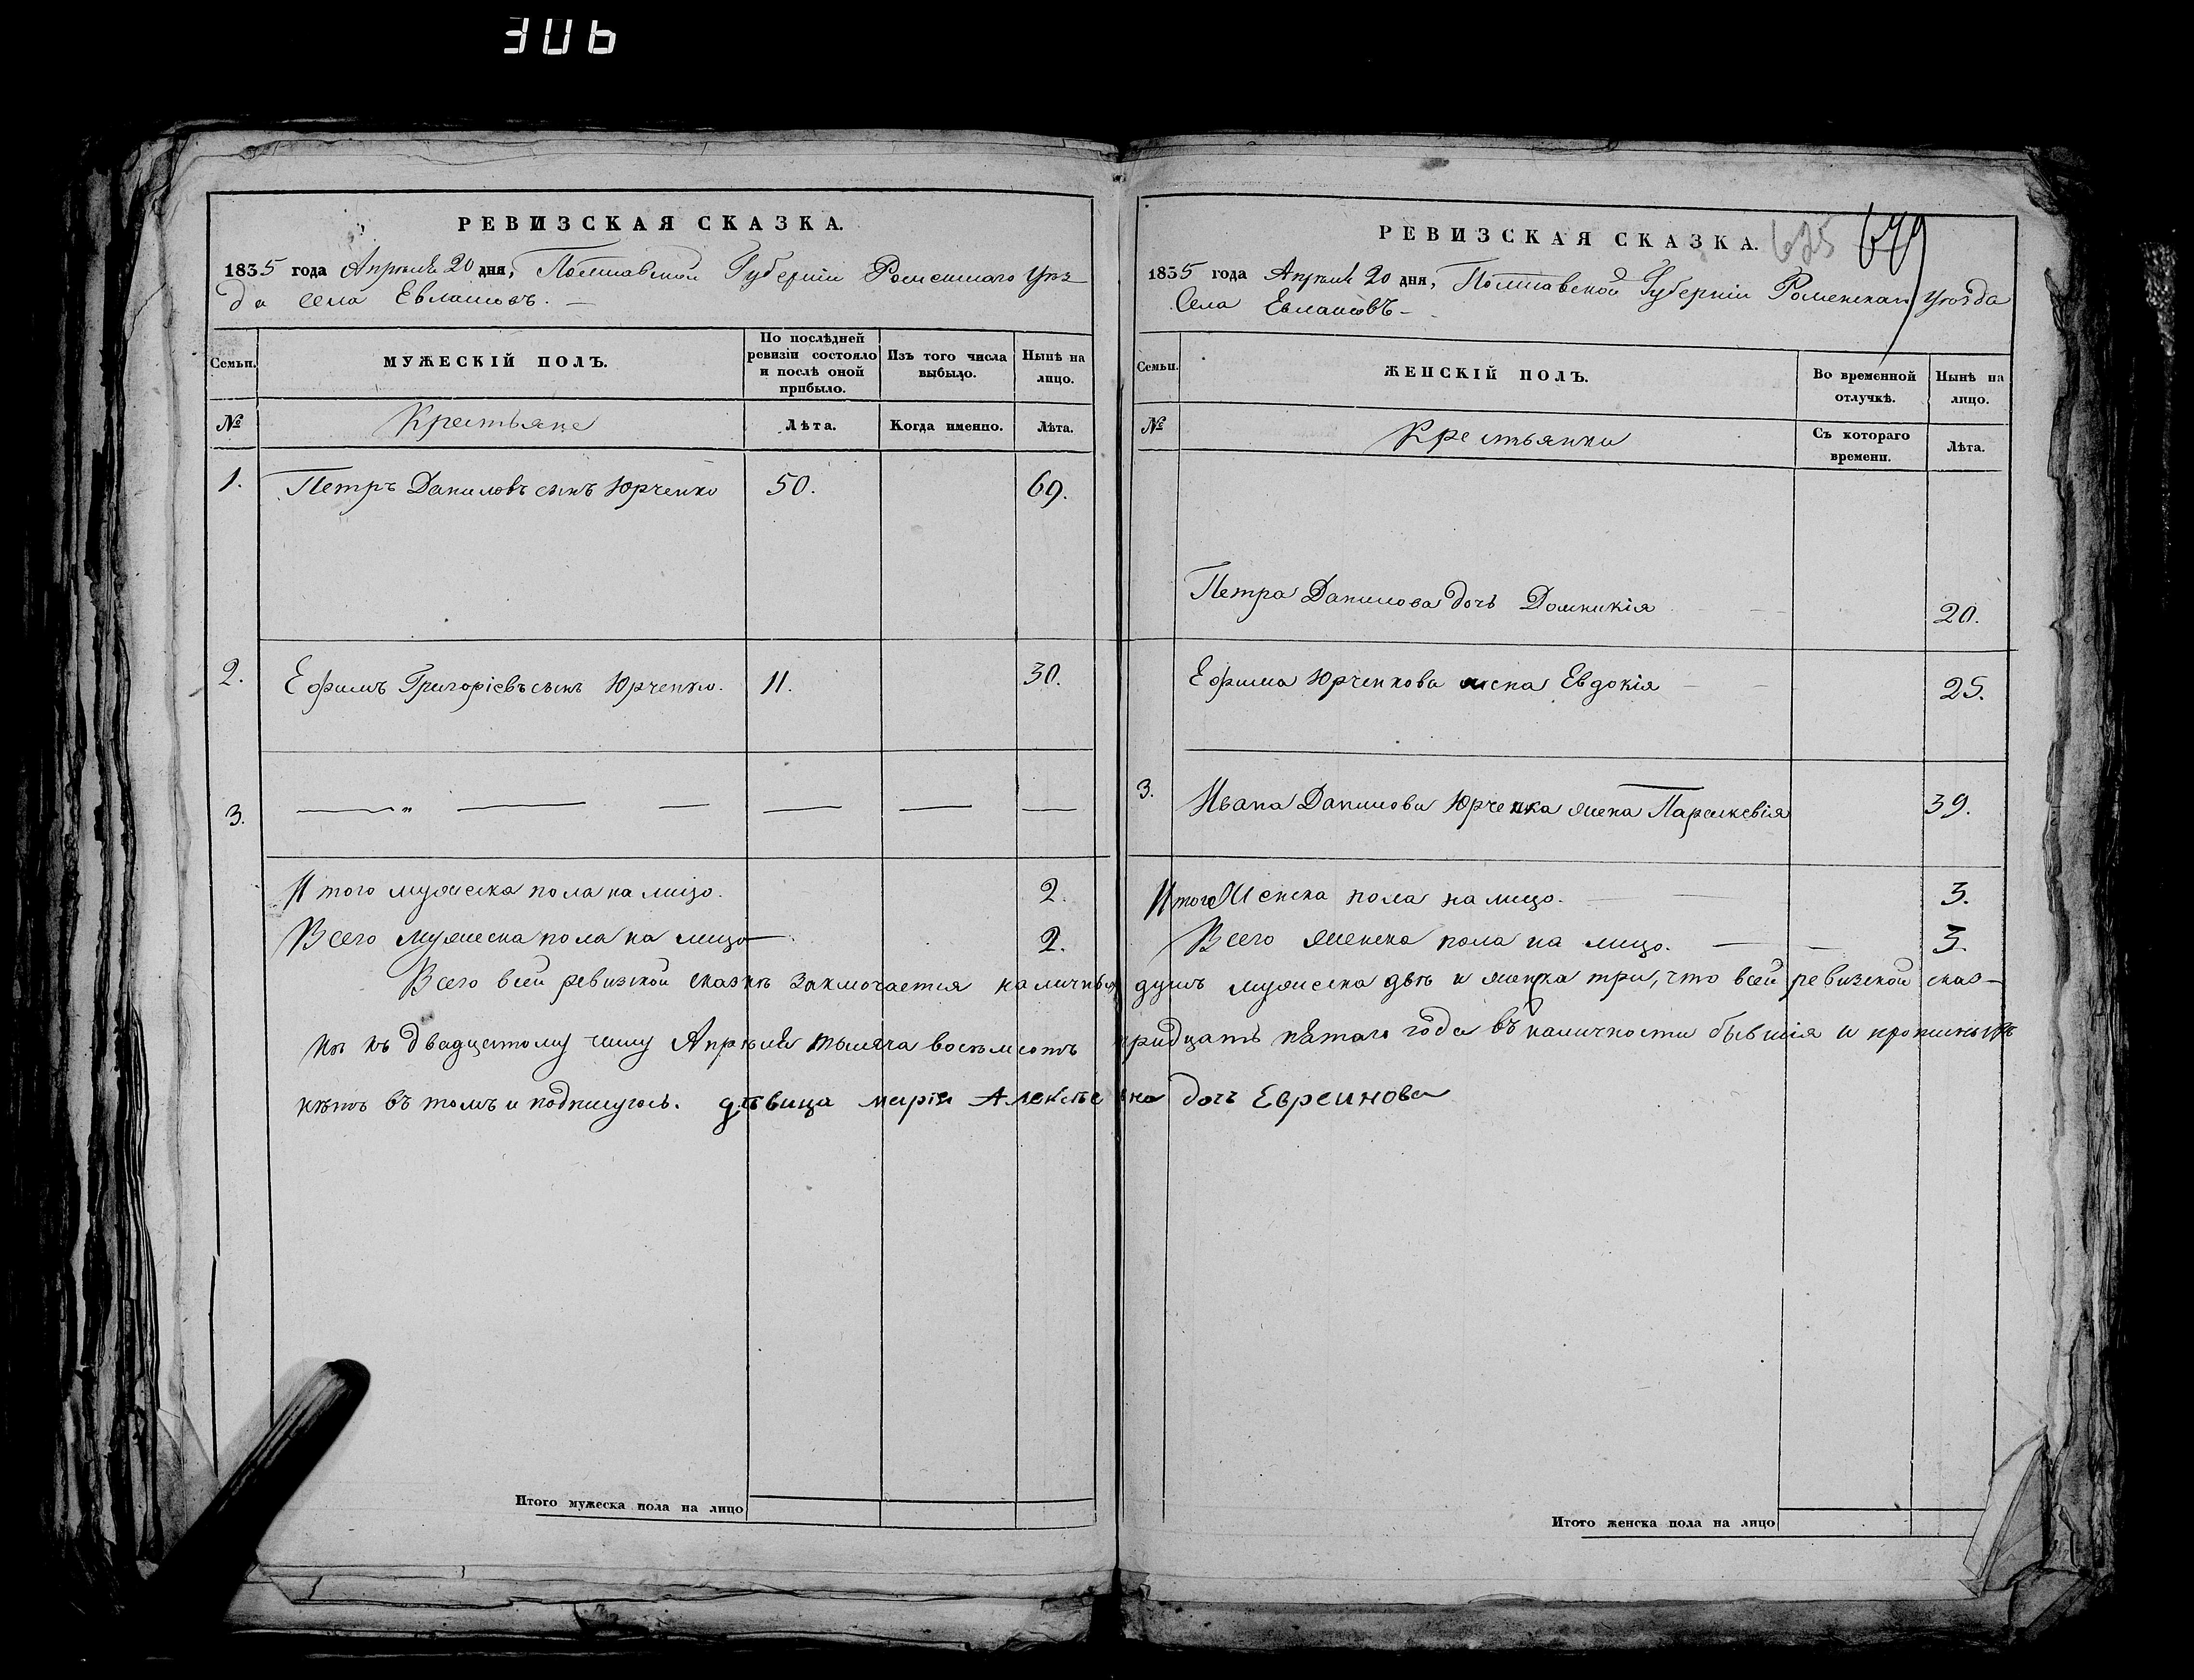 306
РЕВИЗСКАЯ СКАЗКА.
1835 года Апреля 20 дня, Полтавской Губернiи Роменскаго Уѣз
да села Евлашовъ. —
Семьи.
МУЖЕСКІЙ ПОЛЪ.
По послѣдней ревизіи состояло и послѣ оной прибыло.
Изъ того числа выбыло.
Нынѣ на лицо.
№
Крестьяне
Лѣта.
Когда именно.
Лѣта.
1. Петръ Даниловъ сынъ Юрченко 50. 69.
2. Ефимъ Григоріевъ сынъ Юрченко. 11. 30.
3. — „ — — — — —
Итого мужеска пола на лицо. 2.
Всего мужеска пола на лицо — 2.
РЕВИЗСКАЯ СКАЗКА.
625 649
1835 года Апреля 20 дня, Полтавской Губерніи Роменскаго Уѣзда
Села Евлашовъ —
Семьи.
ЖЕНСКІЙ ПОЛЪ.
Во временной отлучкѣ.
Нынѣ на лицо.
№
Крестьянки
Съ котораго времени.
Лѣта.
Петра Данилова дочь Домникія 20.
Ефима Юрченкова жена Евдокія 25.
3. Ивана Данилова Юрченка жена Параскевія 39.
Итого Женска пола на лицо. 3.
Всего женска пола на лицо. — — 3.
Всего всей ревизкой сказкѣ заключается наличныхъ душъ мужеска двѣ и женска три, что всей ревизской сказ-
кѣ къ двадцатому числу Апрѣля тысяча восемьсотъ тридцать пятаго года въ наличности бывшія и прописныхъ
нѣтъ въ томъ и подпишусь. дѣвица марія Алексѣевна дочь Евреинова
Итого мужеска пола на лицо
Итого женска пола на лицо